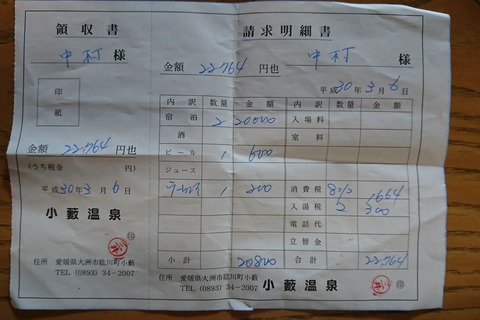 領収書
中村 様
印紙
金額 22,764 円也
(うち税金 円)
平成30年3月6日
小藪温泉
住所 愛媛県大洲市肱川町小藪
TEL (0893) 34-2007
請求明細書
金額 22,764 円也 中村 様
平成30年3月6日
内訳 数量 金額 内訳 数量 金額
宿泊 2 20000 入場料
酒 室料
ビール 1 600
ジュース
1 200 消費税 8% 1664
入湯税 2 300
電話代
立替金
小計 20800 合計 22,764
住所 愛媛県大洲市肱川町小藪
TEL (0893) 34-2007 小藪温泉